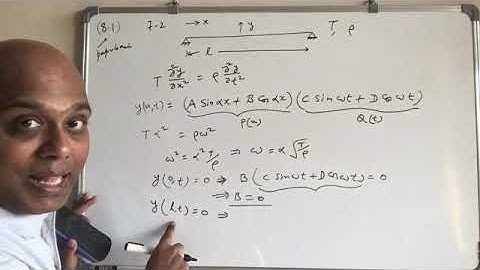 (8.1) 7-2 → x ↑ y T, ρ
l
T ∂²y/∂x² = ρ ∂²y/∂t²
y(x,t) = (A Sin αx + B Cos αx) (C sin ωt + D Cos ωt)
P(x) Q(t)
T α² = ρω²
ω² = α² T/ρ ⇒ ω = α √T/ρ
y(0,t) = 0 ⇒ B (C sin ωt + D Cos ωt) = 0
⇒ B = 0
y(l,t) = 0 ⇒